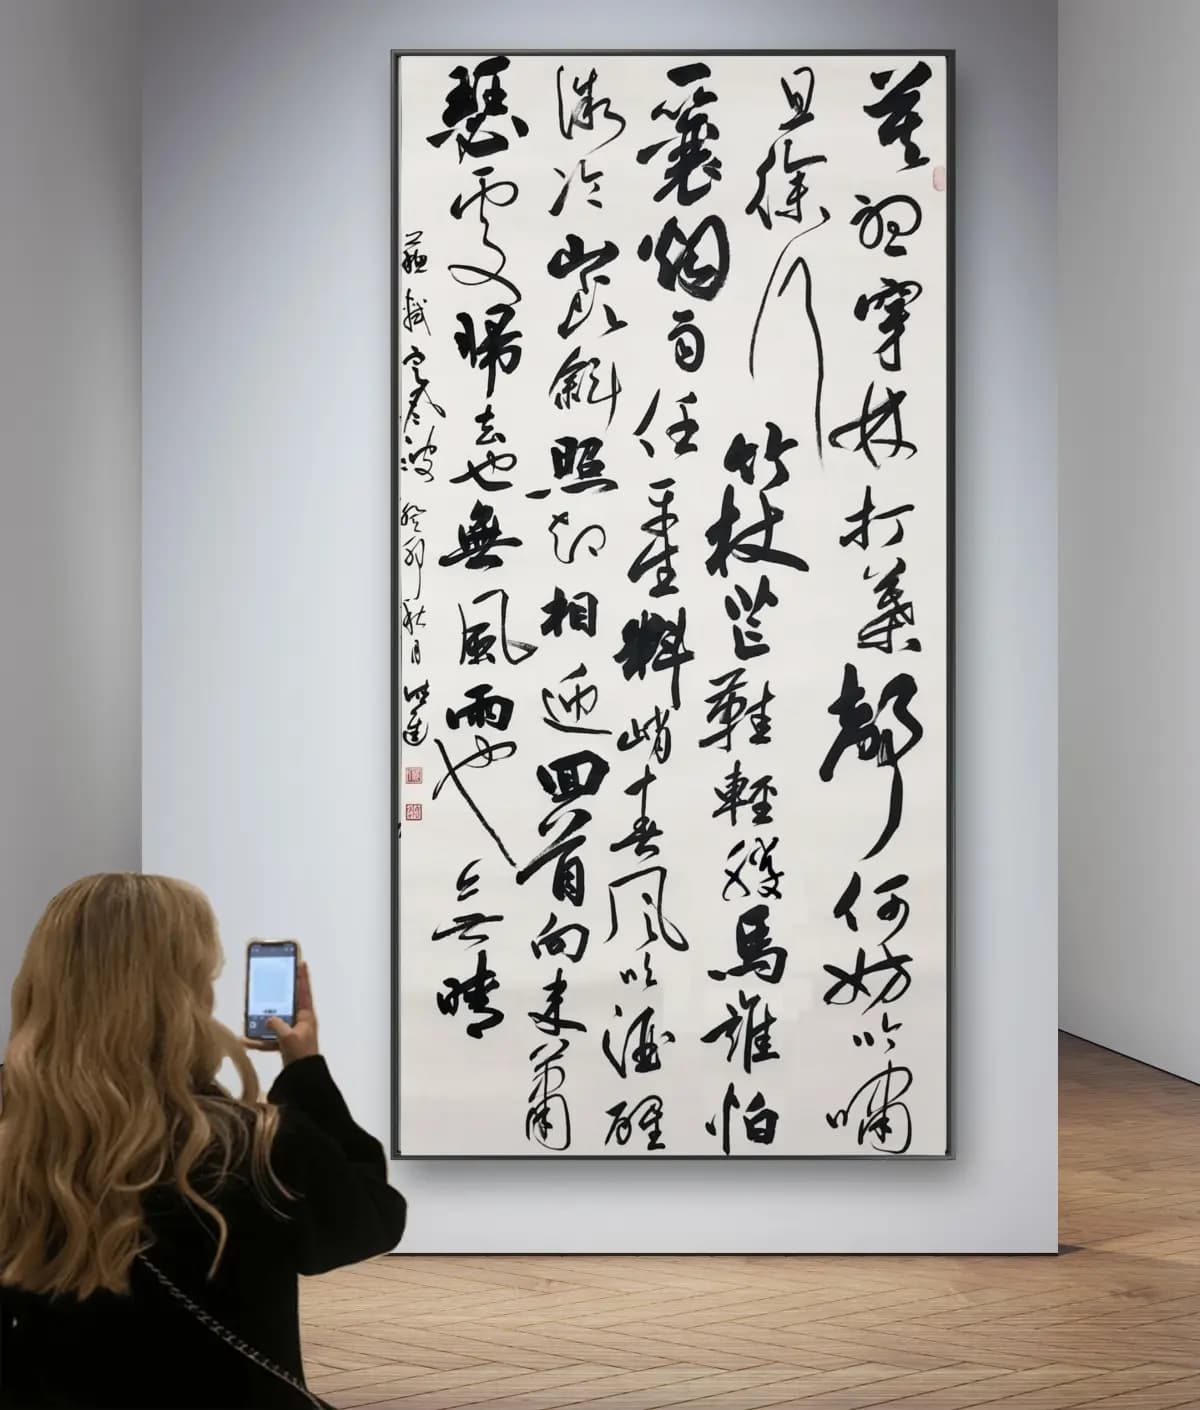 莫聽穿林打葉聲何妨吟嘯
且徐行竹杖芒鞋輕勝馬誰怕
一蓑烟雨任平生料峭春風吹酒醒
微冷山頭斜照却相迎回首向来蕭
瑟處歸去也無風雨也无晴
蘇軾定風波癸卯秋月